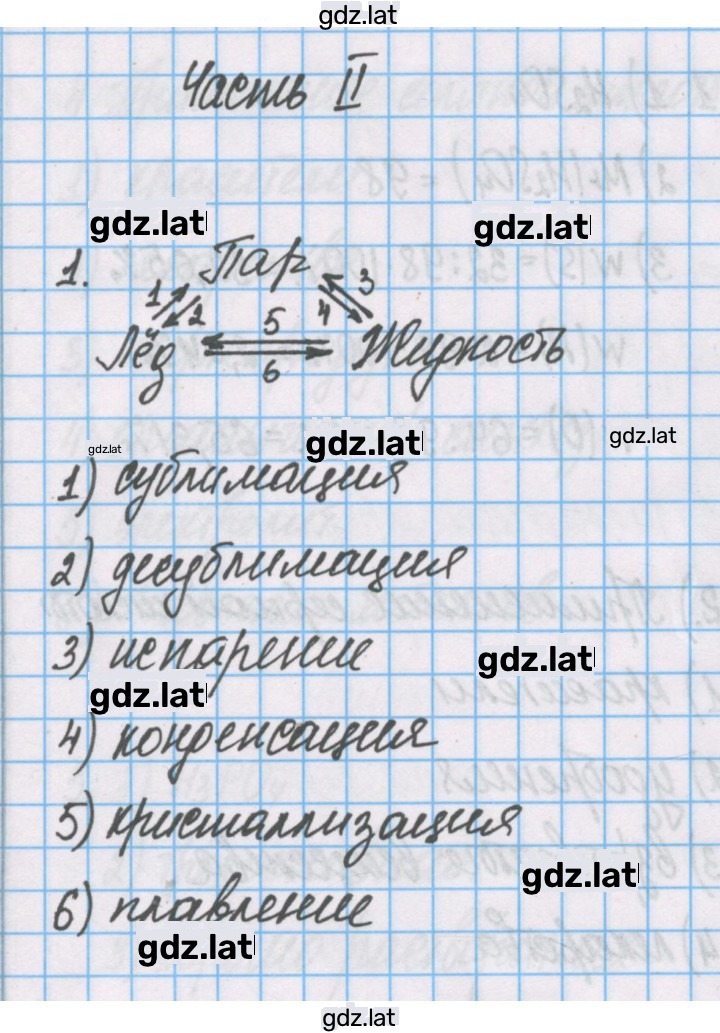 gdz.lat
Часть II
gdz.lat gdz.lat
1. Пар
1 2 3 4
Лёд 5 6 Жидкость
gdz.lat gdz.lat gdz.lat
1) сублимация
2) десублимация
3) испарение
gdz.lat
gdz.lat
4) конденсация
5) кристаллизация
gdz.lat
6) плавление
gdz.lat
gdz.lat